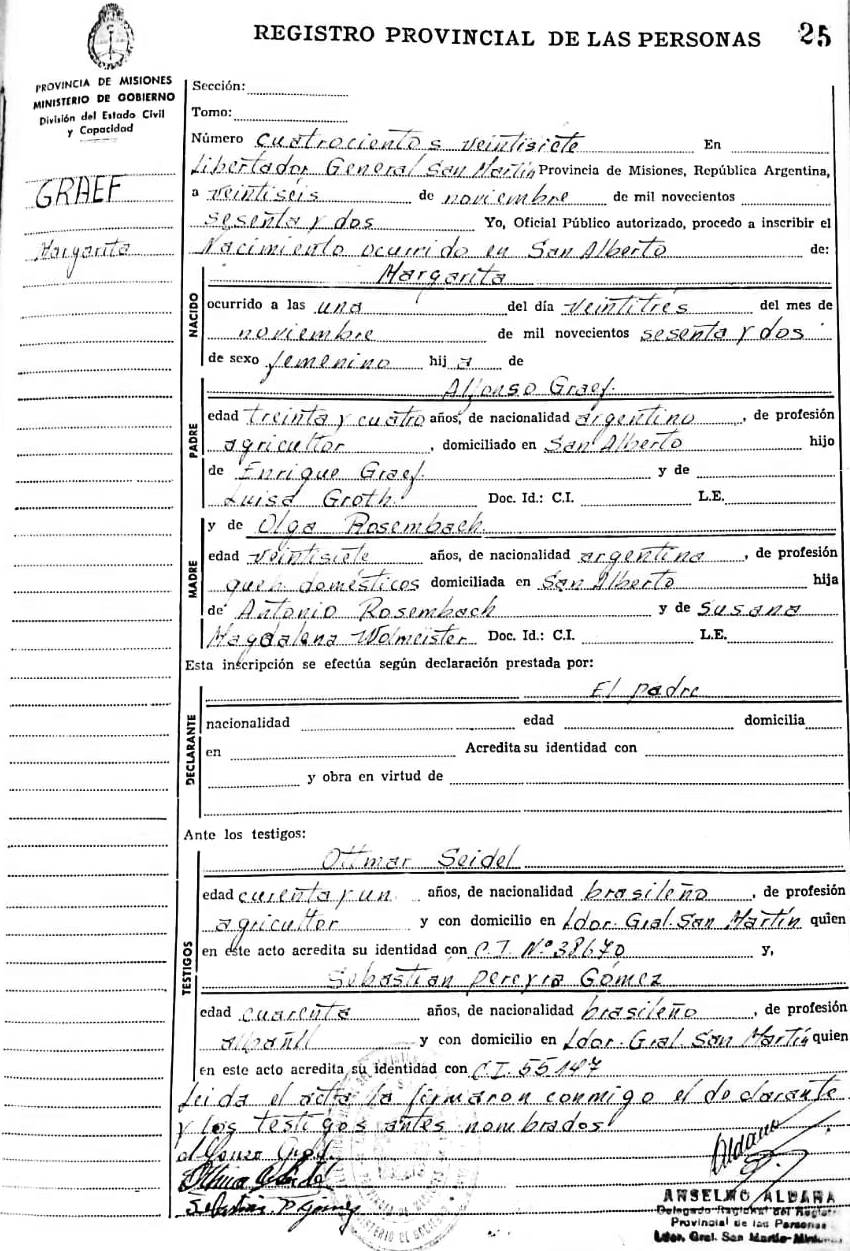 REGISTRO PROVINCIAL DE LAS PERSONAS 25
PROVINCIA DE MISIONES
MINISTERIO DE GOBIERNO
División del Estado Civil
y Capacidad
GRAEF
Margarita
Sección:
Tomo:
Número cuatrocientos veintisiete En
Libertador General San Martín Provincia de Misiones, República Argentina,
a veintiséis de noviembre de mil novecientos
sesenta y dos Yo, Oficial Público autorizado, procedo a inscribir el
Nacimiento ocurrido en San Alberto de:
NACIDO
Margarita
ocurrido a las una del día veintitrés del mes de
noviembre de mil novecientos sesenta y dos
de sexo femenino hij a de
PADRE
Alfonso Graef.
edad treinta y cuatro años, de nacionalidad argentino, de profesión
agricultor, domiciliado en San Alberto hijo
de Enrique Graef. y de
Luisa Groth. Doc. Id.: C.I. L.E.
MADRE
y de Olga Rosembach.
edad veintisiete años, de nacionalidad argentina, de profesión
queh. domésticos domiciliada en San Alberto hija
de Antonio Rosembach y de Susana
Magdalena Wolmeister Doc. Id.: C.I. L.E.
Esta inscripción se efectúa según declaración prestada por:
DECLARANTE
El padre
nacionalidad edad domicilia
en Acredita su identidad con
y obra en virtud de
Ante los testigos:
TESTIGOS
Ottmar Seidel
edad curenta y un años, de nacionalidad brasileño, de profesión
agricultor y con domicilio en Ldor. Gral. San Martín quien
en este acto acredita su identidad con C.I. Nº 38670 y,
Sebastián Pereyra Gómez
edad cuarenta años, de nacionalidad brasileño, de profesión
albañil y con domicilio en Ldor. Gral. San Martín quien
en este acto acredita su identidad con C.I. 55147
Leida el acta la firmaron conmigo el declarante
y los testigos antes nombrados
Sebastian P Gómez
ANSELMO ALDARA
Delegado Regional del Registro
Provincial de las Personas
Ldor. Gral. San Martín-Misiones